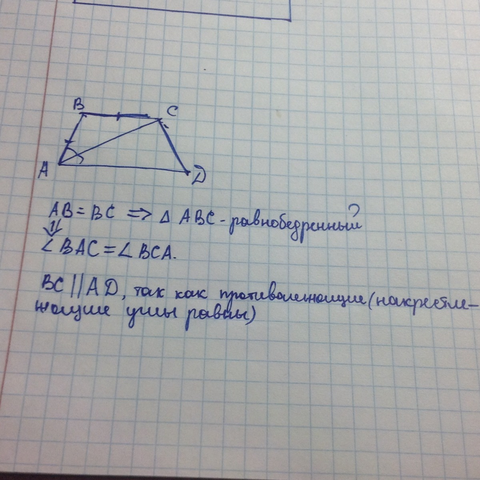 B C
A D
AB = BC ⇒ △ ABC - равнобедренный?
⇓
∠BAC = ∠BCA.
BC || AD, так как противолежащие (накрестле-
жащие углы равны)